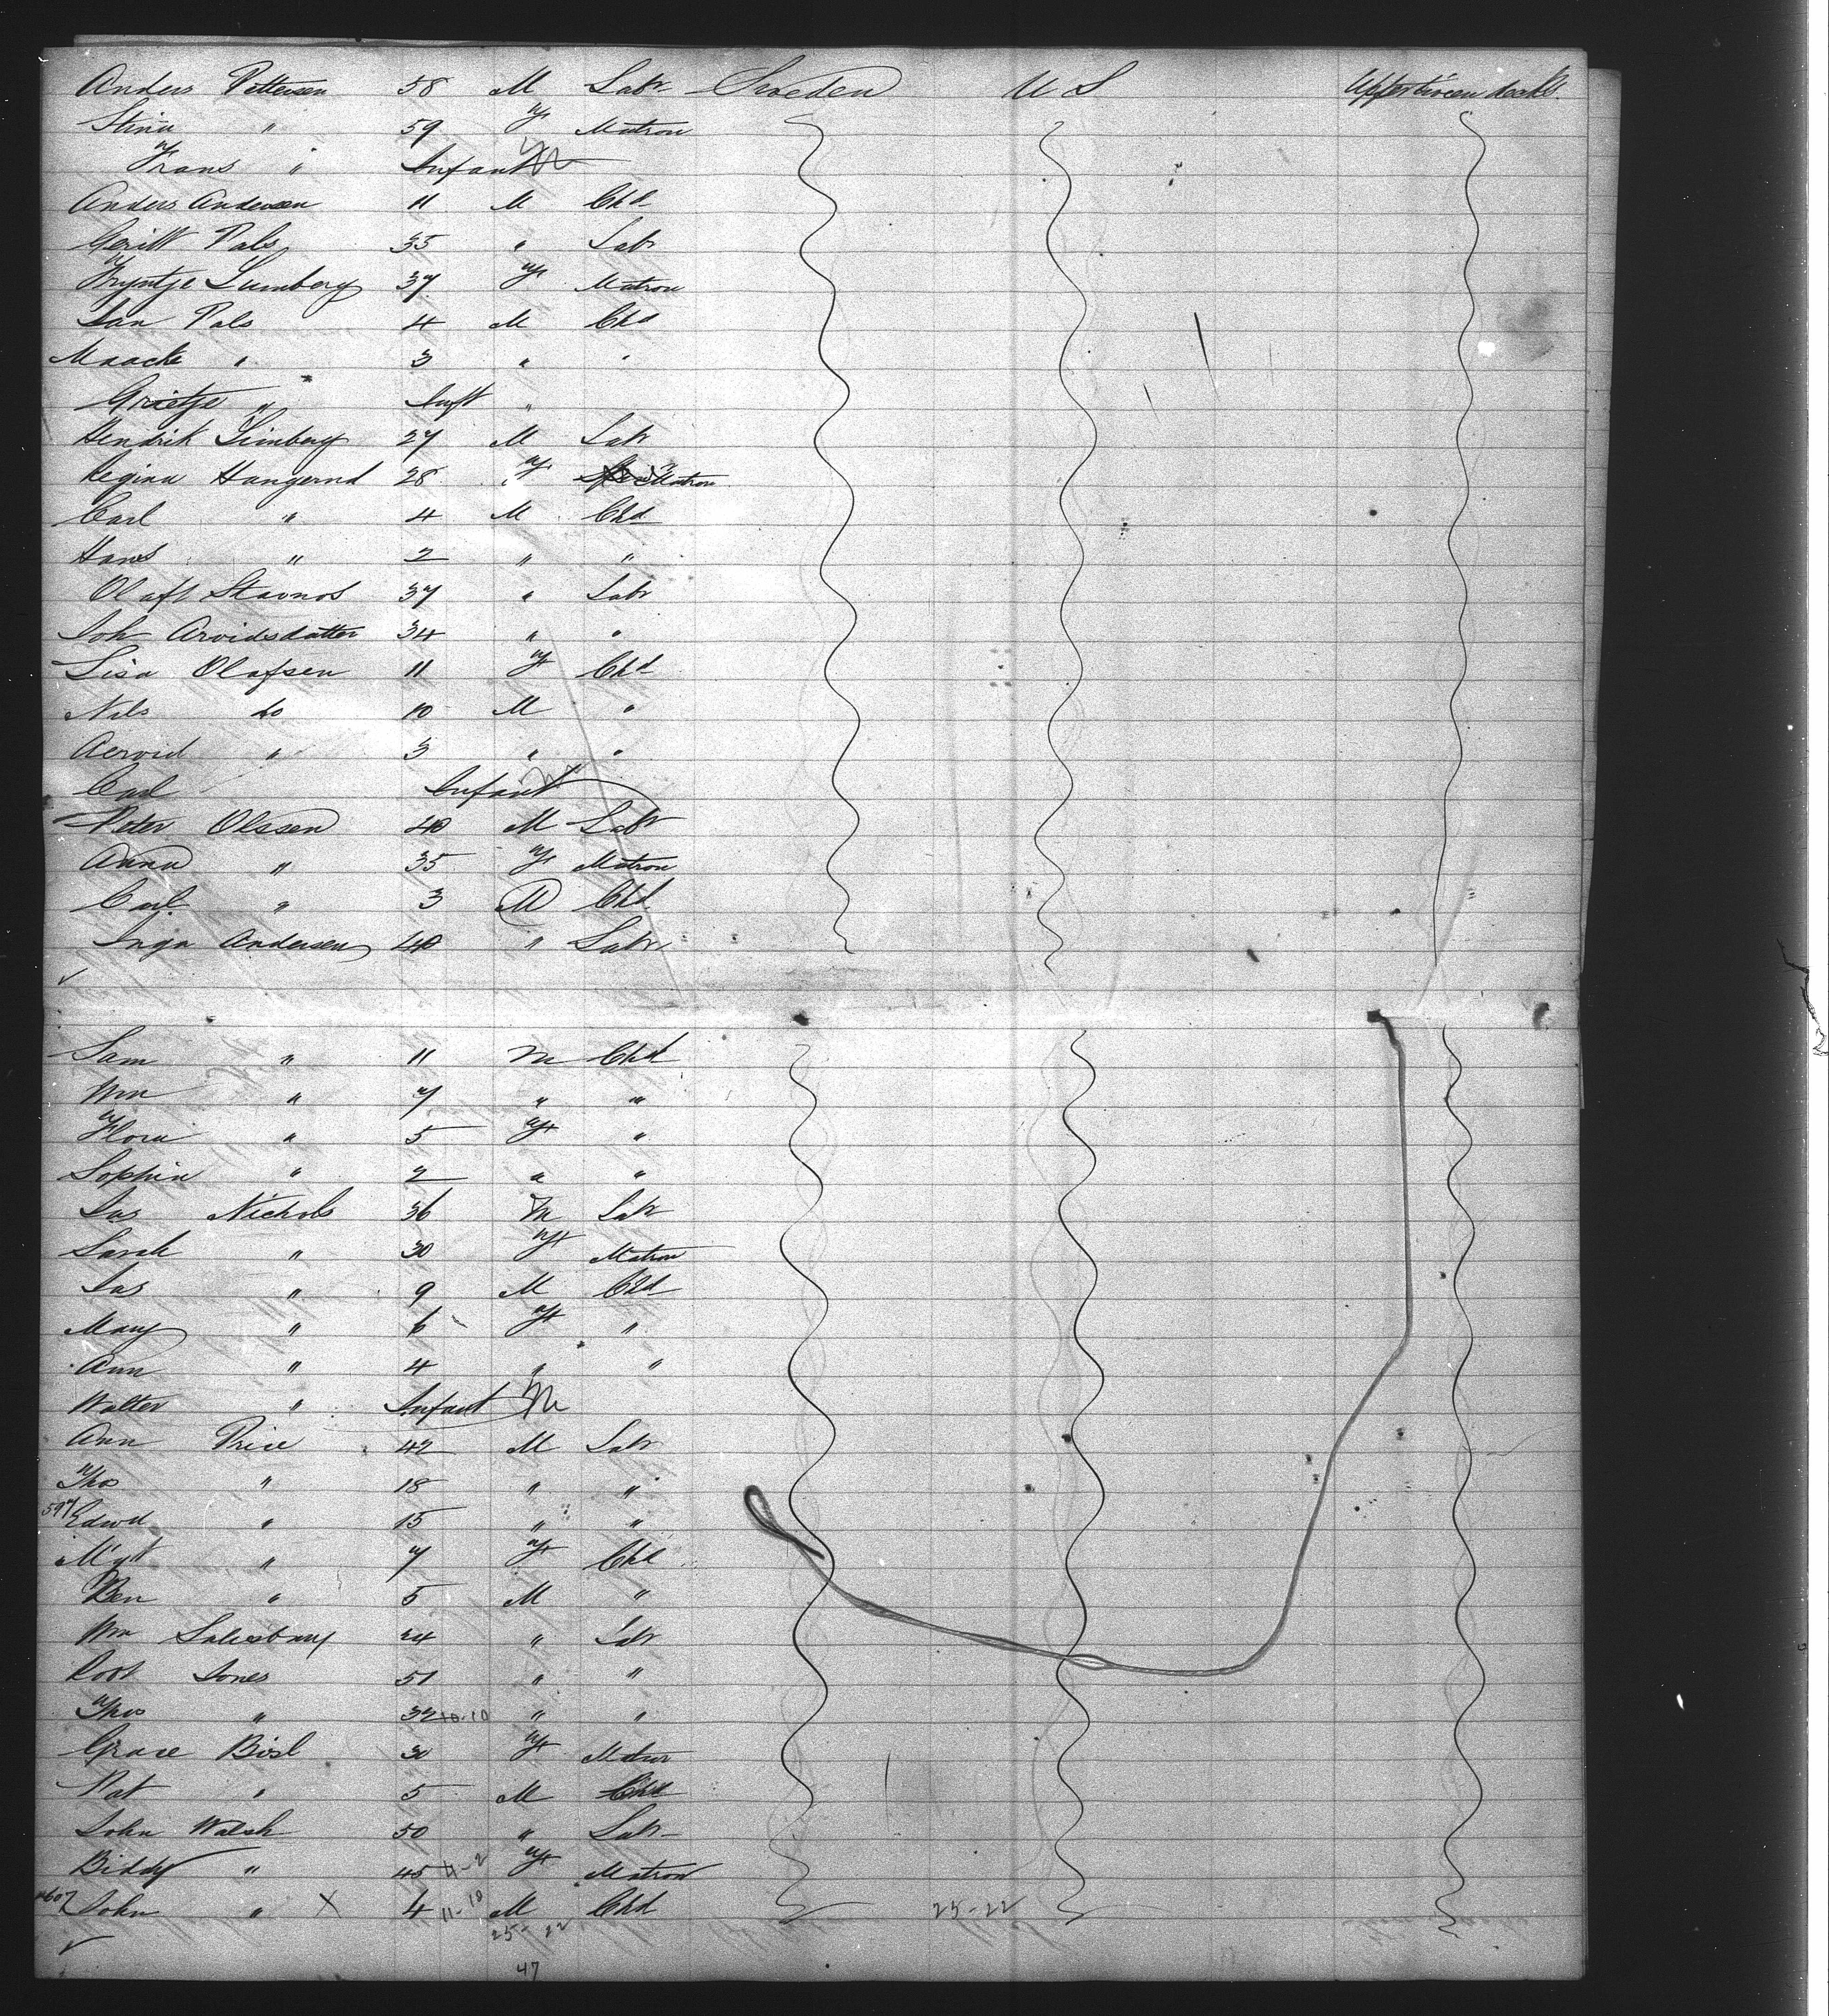 Anders Pettersen 58 M Labr Sweden U S Upper between decks
Stina " 59 F Matron
Frans " Infant M
Anders Andersen 11 M Chd
Geritt Pals 35 " Labr
Fryntje Lumberg 37 F Matron
Jan Pals 4 M Chd
Maacke " 3 " "
Grietje " Inft "
Hendrik Limberg 27 M Labr
Regina Hangernd 28 F Matron
Carl " 4 M Chd
Hans " 2 " "
Oluft Stavnos 37 " Labr
Joh Arvidsdatter 34 " "
Lisa Olafsen 11 F Chd
Nils do 10 M "
Aervid " 3 " "
Carl Infant
Peter Olssen 40 M Labr
Anna " 35 F Matron
Carl " 3 M Chd
Inga Andersen 40 " Labr
Sam " 11 M Chd
Wm " 7 " "
Flora " 5 F "
Sophia " 2 " "
Jas Nichols 36 M Labr
Sarah " 30 F Matron
Jas " 9 M Chd
Mary " 6 F "
Ann " 4 " "
Walter " Infant M
Ann Price 42 M Labr
Thos " 18 " "
597 Edwd " 15 " "
Mgt " 7 F Chd
Ben " 5 M "
Wm Salesbury 24 " Labr
Robt Jones 51 " "
Thos " 32 10-10 " "
Grace Bird 30 F Matron
Pat " 5 M Chd
John Walsh 50 " Labr
Biddy " 45 11-2 F Matron
607 John " X 4 11-10 M Chd 25-22
25-22
47